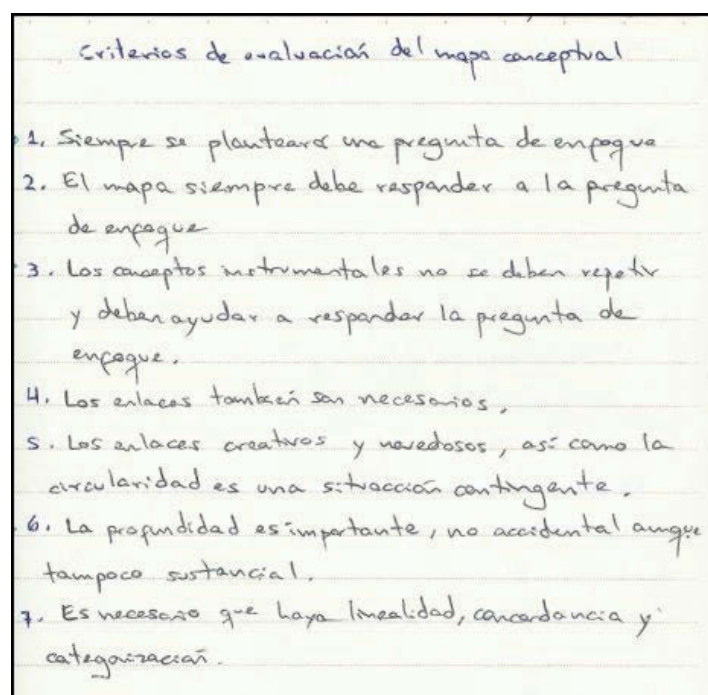 Criterios de evaluación del mapa conceptual
1. Siempre se planteará una pregunta de enfoque
2. El mapa siempre debe responder a la pregunta
de enfoque
3. Los conceptos instrumentales no se deben repetir
y deben ayudar a responder la pregunta de
enfoque.
4. Los enlaces también son necesarios.
5. Los enlaces creativos y novedosos, así como la
circularidad es una situacción contingente.
6. La profundidad es importante, no accidental aunque
tampoco sustancial.
7. Es necesario que haya linealidad, concordancia y
categorización.